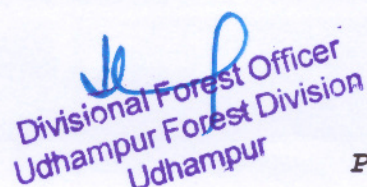 Divisional Forest Officer
Udhampur Forest Division
Udhampur
P